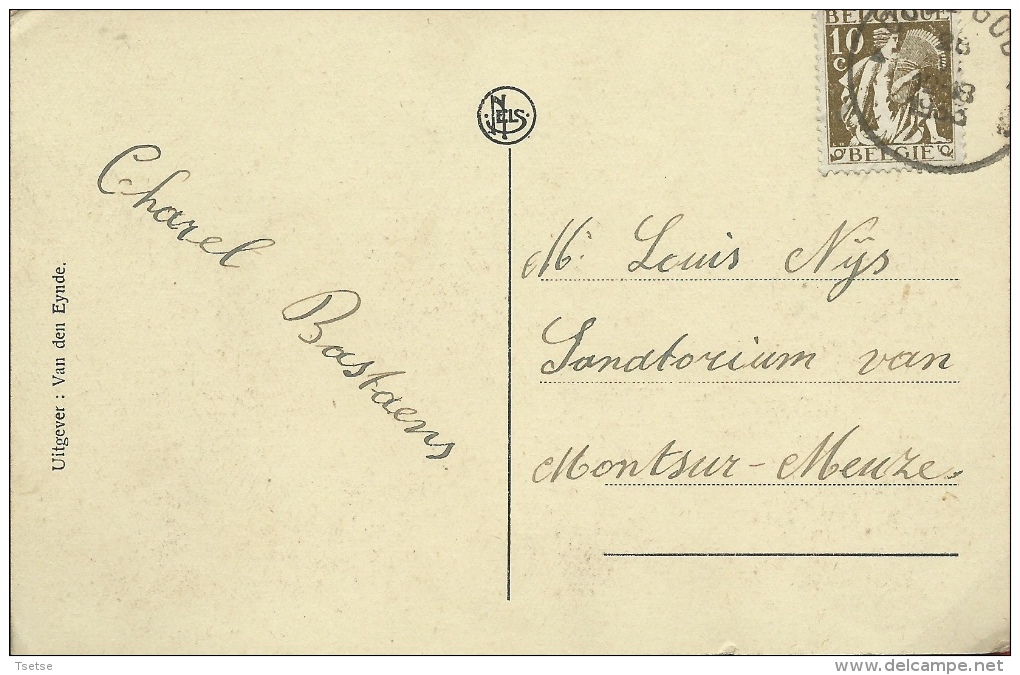 BELGIQUE
10
c
BELGIE
1933
NELS
Charel
Bastaens
Uitgever : Van den Eynde.
Mr Louis Nÿs
Sanatorium van
Montsur-Meuze.
Tsetse
www.delcampe.net